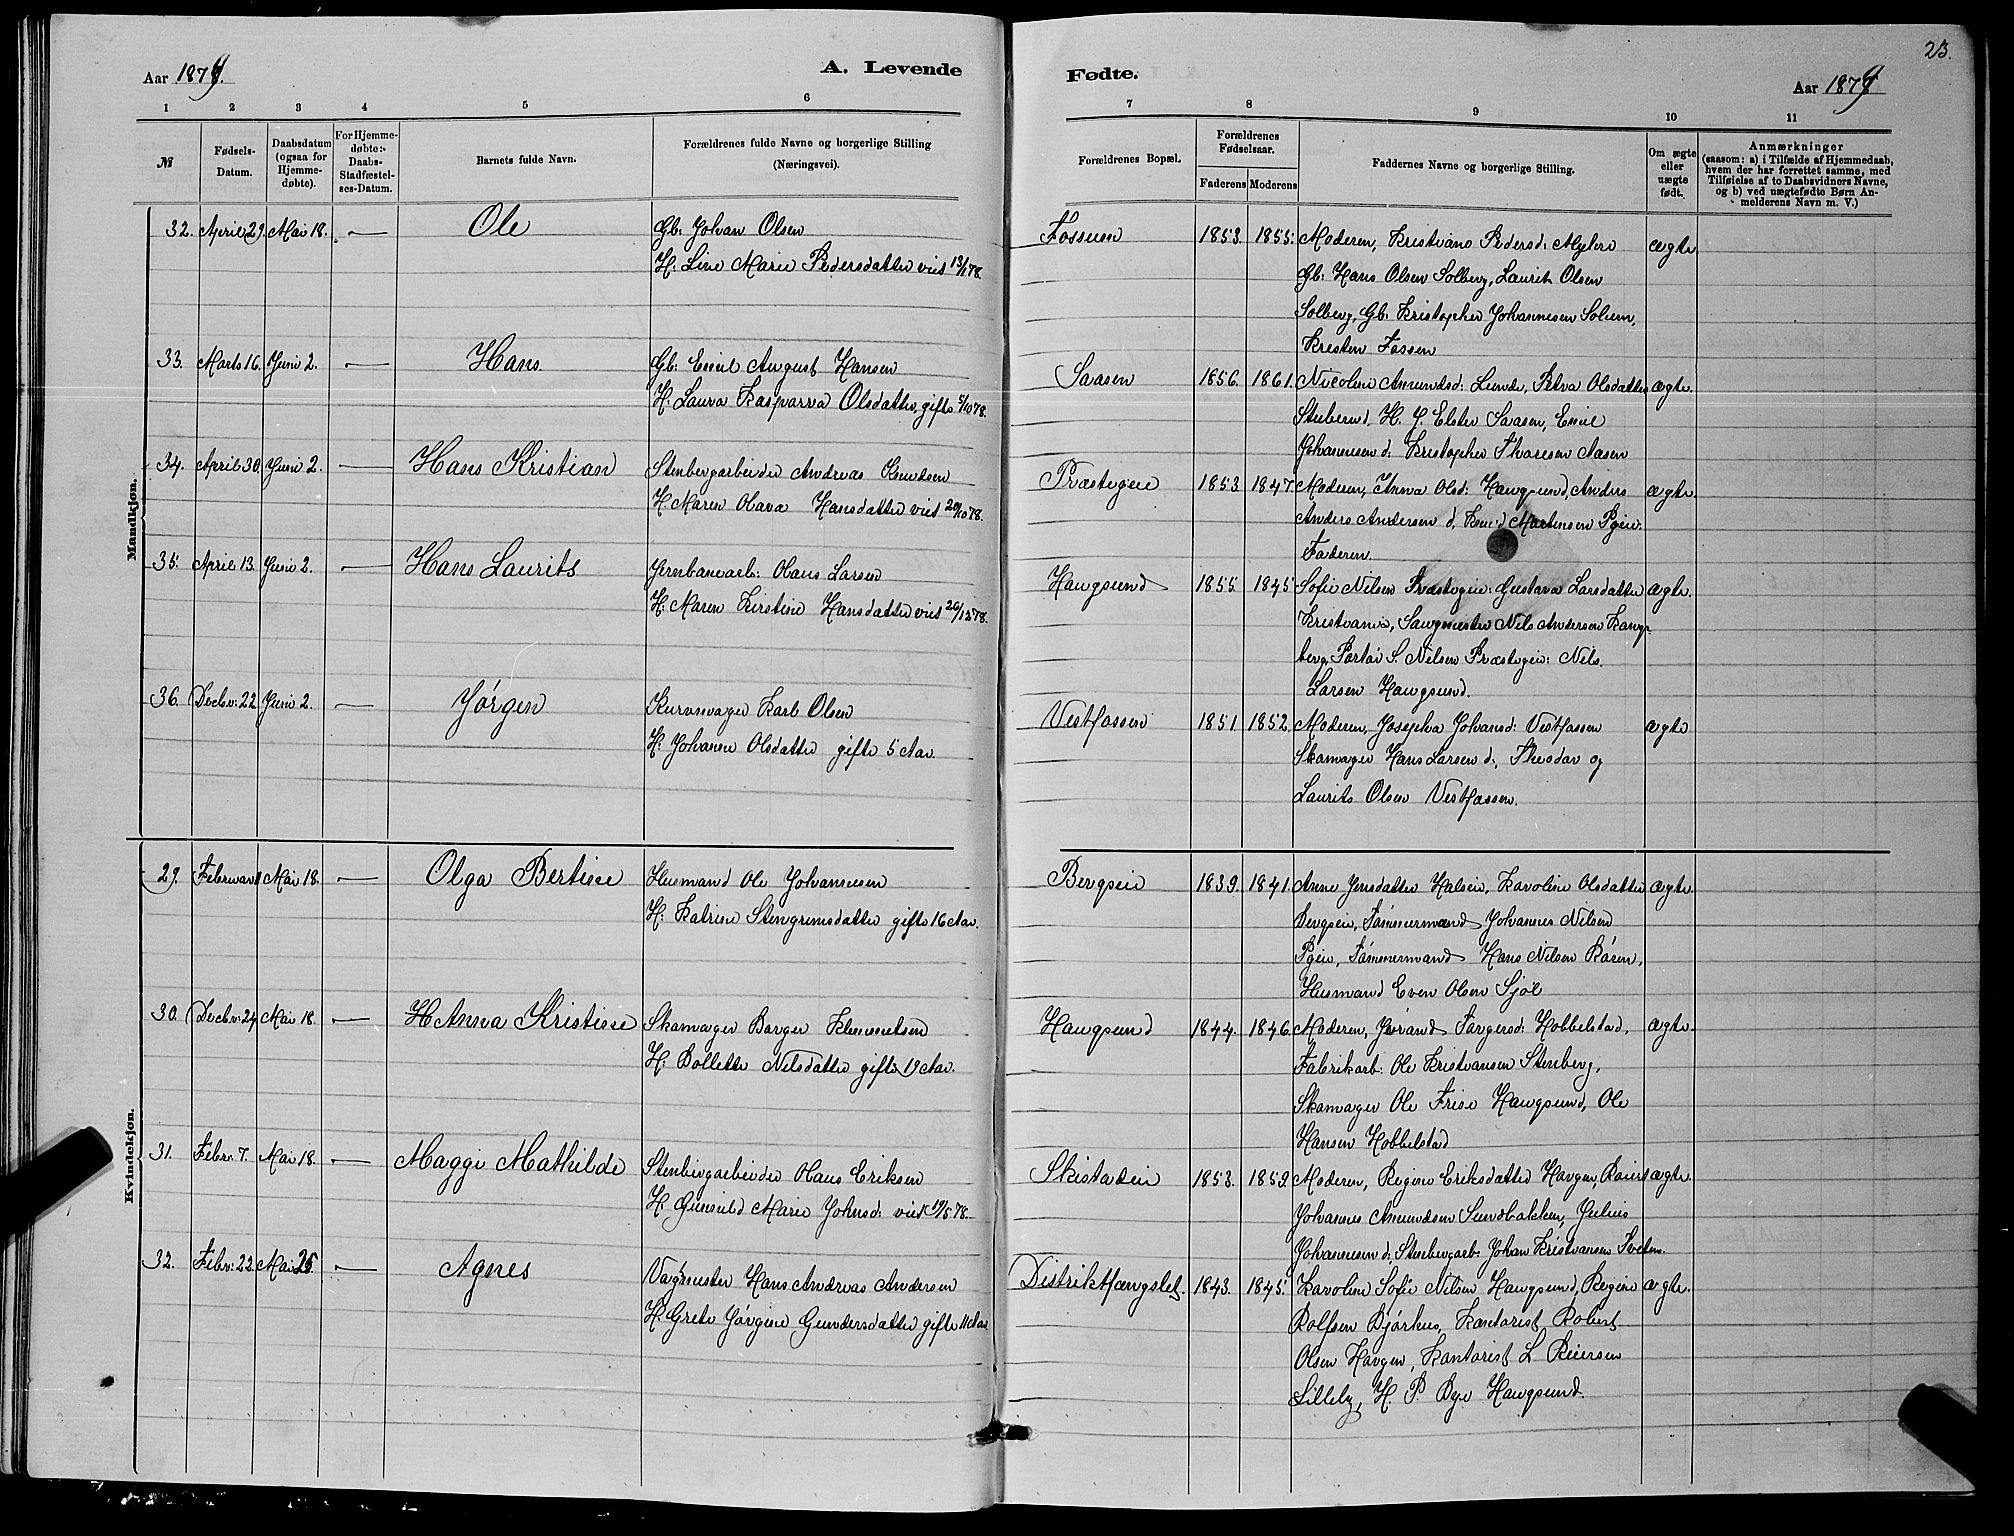 23.
Aar 1879.
A. Levende
Fødte.
Aar 1879
1 2 3 4 5 6 7 8 9 10 11
№
Fødsels-Datum.
Daabsdatum (ogsaa for Hjemme-døbte).
For Hjemme-døbte: Daabs-Stadfæstel-ses-Datum.
Barnets fulde Navn.
Forældrenes fulde Navne og borgerlige Stilling (Næringsvei).
Forældrenes Bopæl.
Forældrenes Fødselsaar.
Faderens Moderens
Faddernes Navne og borgerlige Stilling.
Om ægte eller uægte født.
Anmærkninger
(saasom: a) i Tilfælde af Hjemmedaab, hvem der har forrettet samme, med Tilføielse af to Daabsvidners Navne, og b) ved uægtefødte Børn An-melderens Navn m. V.)
Mandkjøn.
32. April 29. Mai 18. — Ole Gb: Johan Olsen Fossum 1853. 1855. Moderen, Kristiane Pedersd: Myhre ægte
H: Line Marie Pedersdatter viet 13/1 78.
Gb: Hans Olsen Solberg, Laurits Olsen
Solberg, Gb: Kristopher Johannesen Solum,
Kresten Fossen
33. Marts 16. Juni 2. — Hans Gb: Emil August Hansen Saasen 1856. 1861. Nicoline Amundsd: Lunde, Petra Olsdatter ægte.
H: Laura Kasparra Olsdatter, gifte 5/10 78.
Stuberud, H. J. Elster Saasen, Emil
Johannesen d: Kristopher Thoresen Aasen
34. April 30. Juni 2. — Hans Kristian Stenbergarbeider Andreas Knudsen Præstegeie 1853. 1847. Moderen, Anna Olsd: Haugsund, Anders ægte.
H: Maren Olava Hansdatter viet 20/10 78.
Anders Andersen d, Knud Martensen Pgeie.
Faderen.
35. April 13. Juni 2. — Hans Laurits Jernbanearb: Hans Larsen Haugsund 1855. 1845 Sofie Nilsen Præstegeie: Gustava Larsdatter ægte.
H: Maren Kirstine Hansdatter viet 26/12 78.
Kristiania, Saugmester Nils Andersen Kongs-
berg, Portør S. Nilsen Præstegeie: Nils
Larsen Haugsund.
36. Decbr: 22. Juni 2. — Jørgen Kurvmager Karl Olsen Vestfossen 1851 1852. Moderen, Josepha Johansd: Vestfossen ægte
H: Johanne Olsdatter gifte 5 Aar.
Skomager Hans Larsen d:, Theodor og
Laurits Olsen Vestfossen.
Kvindekjøn.
29. Februar 1 Mai 18. — Olga Bertine Husmand Ole Johannesen Bergseie 1839. 1841. Anne Jensdatter Halseie, Karoline Olsdatter ægte.
H: Katrine Stengrimsdatter gifte 16 Aar.
Bergseie, Tømmermand Johannes Nilsen
Pgeie, Tømmermand Hans Nilsen Røren,
Husmand Even Olsen Sjøl
30. Decbr: 24. Mai 18. — Anna Kristine Skomager Borger Klemmetsen Haugsund 1844. 1846. Moderen, Jørand Torgersd: Hobbelstad, ægte.
H: Bollette Nilsdatter gifte 19 Aar.
Fabrikarb: Ole Kristiansen Stenberg,
Skomager Ole Frise Haugsund, Ole
Hansen Hobbelstad
31. Febr: 7. Mai 18. — Maggi Mathilde Stenbergarbeider Hans Eriksen Skistadeie 1853. 1859. Moderen, Regine Eriksdatter Haugen, ægte.
H: Gunvild Marie Johnsd: viet 19/5 78.
Johannes Amundsen Sundbakken, Julius
Johannesen d: Stenbergarb: Johan Kristiansen Tveten.
32. Febr: 22. Mai 25. — Agnes Vagtmester Hans Andreas Andersen Distriktfængslet. 1843. 1845. Karoline Sofie Nilsen Haugsund, Regine ægte.
H: Grete Jørgine Gundersdatter gifte 11 Aar.
Rolfsen Bjørkus, Kontorist Robert
Olsen Haugen, Kontorist L. Reiersen
Lilleby, H. P. Bye Haugsund.